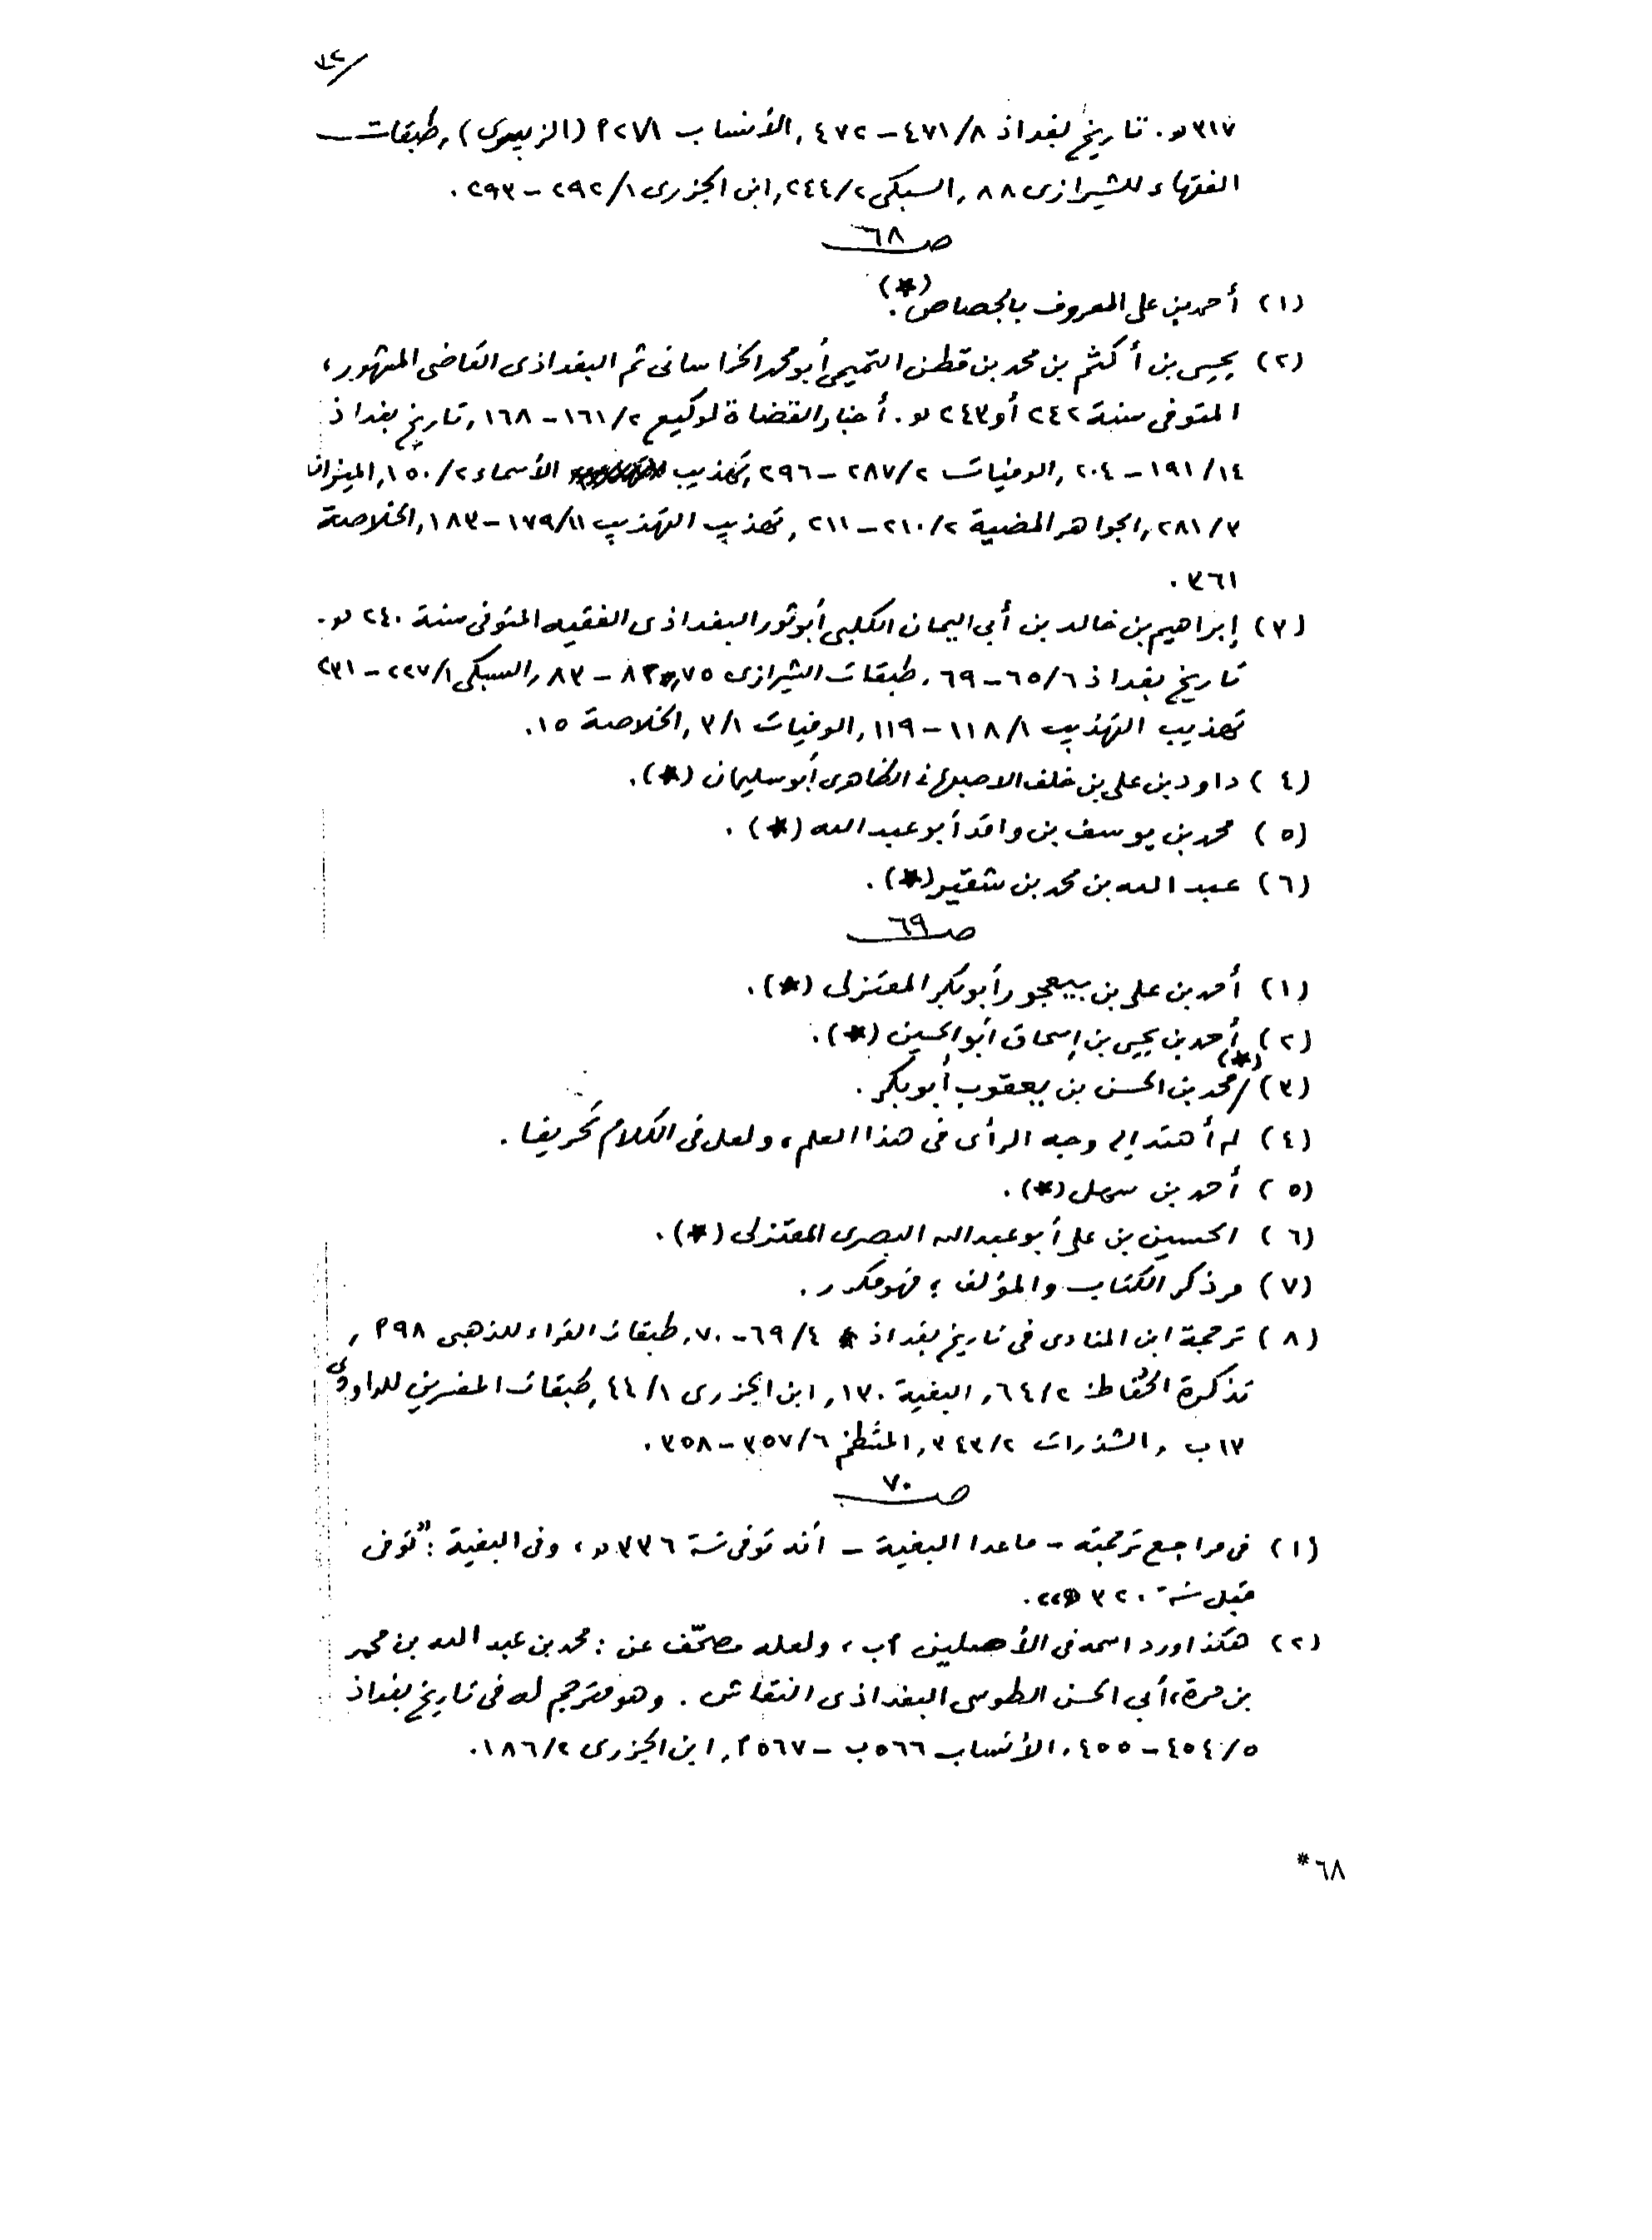 ٧٢/
٣١٧ ه. تاريخ بغداذ ٨/ ٤٧١ - ٤٧٢ , الأنساب ٢٧١ م (الزبيرى) , طبقات
الفقهاء للشيرازى ٨٨ , السبكى ٢/ ٢٤٤ , ابن الجزرى ١/ ٢٩٢ - ٢٩٣ .
صـ ٦٨
(١) أحمد بن على المعروف بالجصاص (*) .
(٢) يحيى بن أكثم بن محمد بن قطن التميمى أبو محمد الخراسانى ثم البغداذى القاضى المشهور ،
المتوفى سنة ٢٤٢ أو ٢٤٣ ه . أخبار القضاة لوكيع ٢/ ١٦١ - ١٦٨ , تاريخ بغداذ
١٤/ ١٩١ - ٢٠٤ , الوفيات ٢/ ٢٨٧ - ٢٩٦ , تهذيب الأسماء ٢/ ١٥٠ , الميزان
٣/ ٢٨١ , الجواهر المضية ٢/ ٢١٠ - ٢١١ , تهذيب التهذيب ١١/ ١٧٩ - ١٨٣ , الخلاصة
٣٦١ .
(٣) إبراهيم بن خالد بن أبي اليمان الكلبى أبو ثور البغداذى الفقيه المتوفى سنة ٢٤٠ ه .
تاريخ بغداذ ٦/ ٦٥ - ٦٩ , طبقات الشيرازى ٧٥ , ٨٢ - ٨٣ , السبكى ١/ ٢٢٧ - ٢٣١
تهذيب التهذيب ١/ ١١٨ - ١١٩ , الوفيات ١/ ٣ , الخلاصة ١٥ .
(٤) داود بن على بن خلف الاصبهانى الظاهرى أبو سليمان (*) .
(٥) محمد بن يوسف بن واقد أبو عبد الله (*) .
(٦) عبد الله بن محمد بن شقير (*) .
صـ ٦٩
(١) أحمد بن على بن بيغجور أبو بكر المعتزلى (*) .
(٢) أحمد بن يحيى بن إسحاق أبو الحسين (*) .
(٣) / محمد بن الحسن بن يعقوب أبو بكر (*) .
(٤) لم أهتد إلى وجه الرأى فى هذا العلم ، ولعل فى الكلام تحريفا .
(٥) أحمد بن سهل (*) .
(٦) الحسين بن على أبو عبد الله البصرى المعتزلى (*) .
(٧) مر ذكر الكتاب والمؤلف ؛ فهو مكرر .
(٨) ترجمة ابن المنادى فى تاريخ بغداذ ٤/ ٦٩ - ٧٠ , طبقات القراء للذهبى ٩٨ م ,
تذكرة الحفاظ ٢/ ٦٤ , البغية ١٧٠ , ابن الجزرى ١/ ٤٤ , طبقات المفسرين للداودى
١٣ ب , الشذرات ٢/ ٣٤٣ , المنتظم ٦/ ٣٥٧ - ٣٥٨ .
صـ ٧٠
(١) فى مراجع ترجمته - ماعدا البغية - أنه توفى سنة ٣٣٦ ه ، وفى البغية : " توفى
قبل سنة ٣٢٠ " .
(٢) هكذا ورد اسمه فى الأصلين م ب ، ولعله مصحّف عن : محمد بن عبد الله بن محمد
بن مرة ، أبي الحسن الطوسى البغداذى النقاش . وهو مترجم له فى تاريخ بغداذ
٥/ ٤٥٤ - ٤٥٥ , الأنساب ٥٦٦ ب - ٥٦٧ م , ابن الجزرى ٢/ ١٨٦ .
٦٨ *